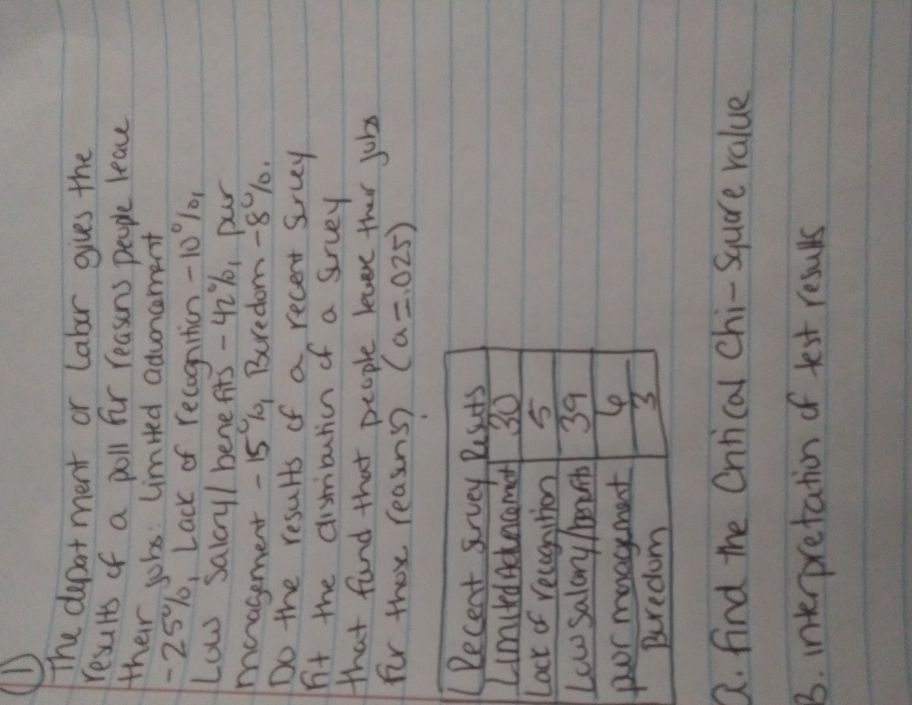 1
The department or Labor gives the
results of a poll for reasons people leave
their jobs: Limited advancement
-25%, Lack of recognition -10%,
Low Salary/benefits -42%, poor
management -15%, Boredom -8%.
Do the results of a recent survey
fit the distribution of a survey
that found that people leave their jobs
for those reasons? (a=.025)
Recent survey Results
Limited Advancement 30
Lack of recognition 5
Low salary/benefits 39
poor management 6
Boredom 3
a. find the Critical Chi-Square value
B. interpretation of test results